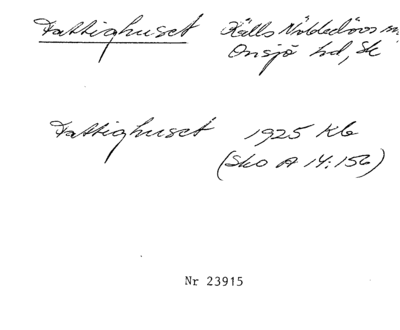 Fattighuset Källs Nöbbelövs
Onsjö hd, Sk
Fattighuset 1925 Kb
(Sko A 14:156)
Nr 23915